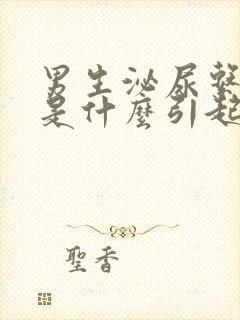 男生泌尿繫
是什麼引起
聖香